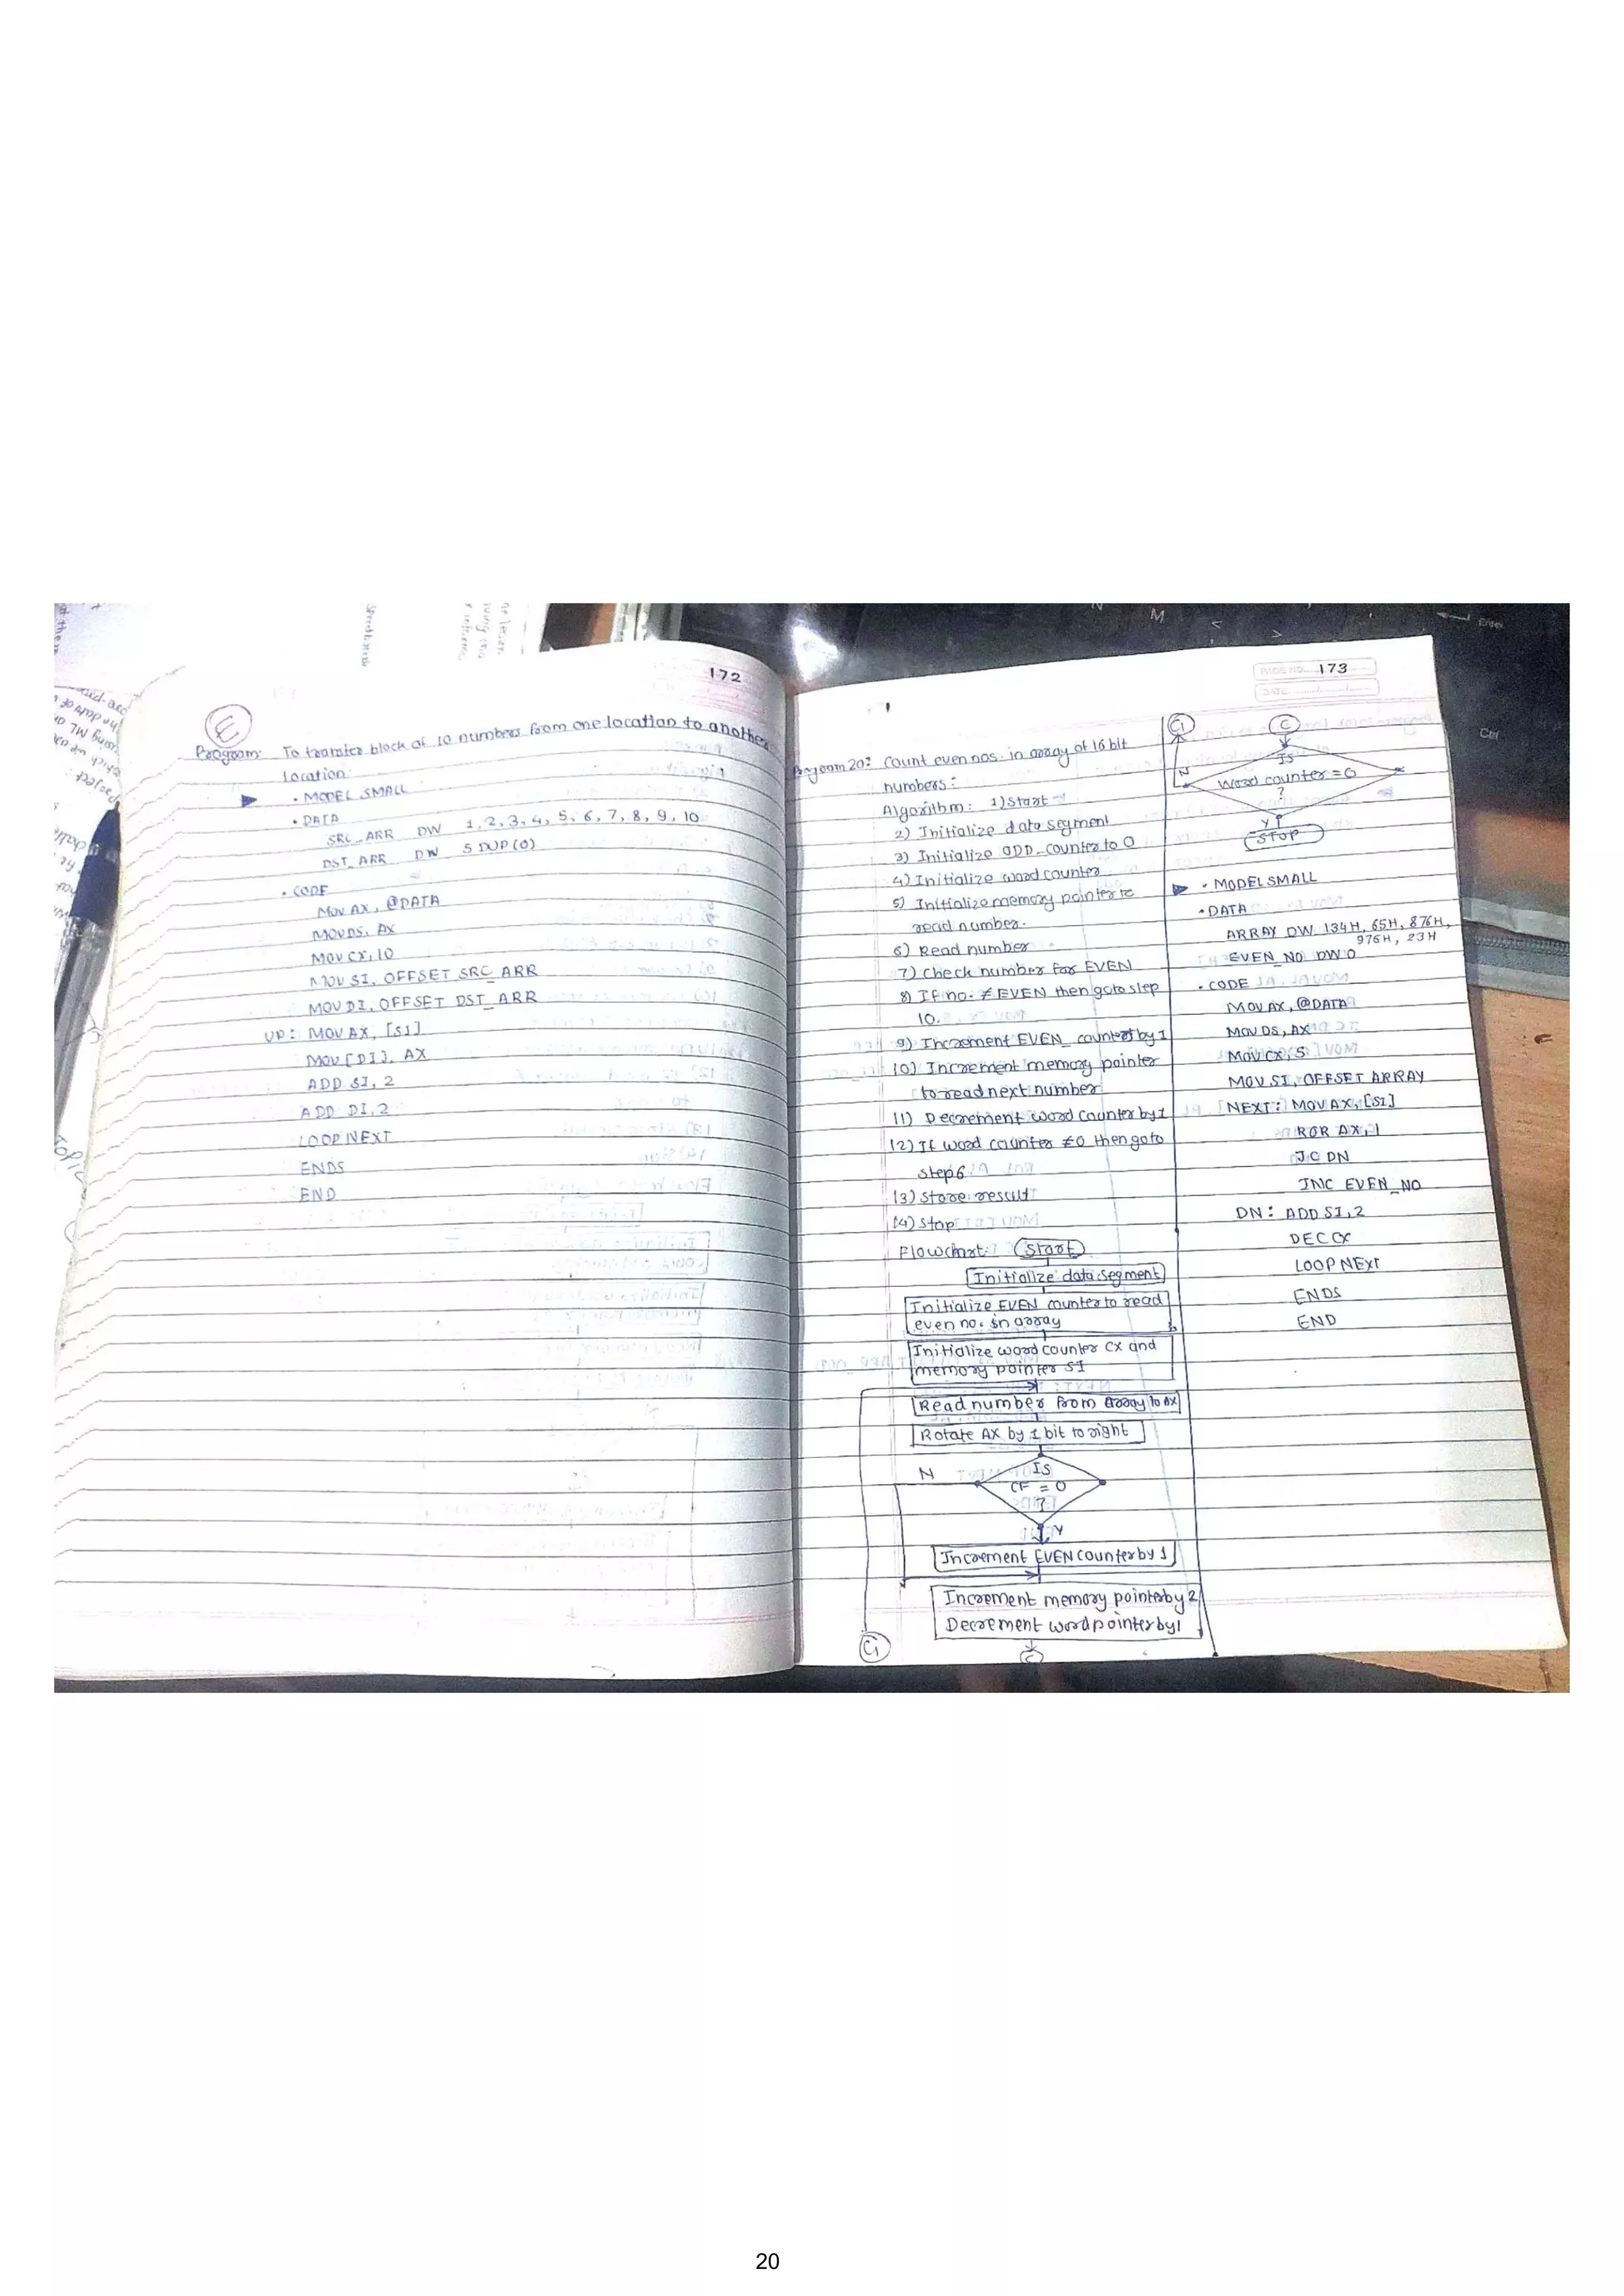 172
E
Program: To transfer block of 10 numbers from one location to another
location.
. MODEL SMALL
. DATA
SRC_ARR DW 1, 2, 3, 4, 5, 6, 7, 8, 9, 10
DST_ARR DW 5 DUP(0)
. CODE
MOV AX, @DATA
MOV DS, AX
MOV CX, 10
MOV SI, OFFSET SRC_ARR
MOV DI, OFFSET DST_ARR
UP: MOV AX, [SI]
MOV [DI], AX
ADD SI, 2
ADD DI, 2
LOOP NEXT
ENDS
END
PAGE NO. 173
DATE
Program 20: Count even nos. in array of 16 bit
numbers:
Algorithm: 1) Start
2) Initialize data segment
3) Initialize ODD_counter to 0
4) Initialize word counter
5) Initialize memory pointer to
read number.
6) Read number
7) Check number for EVEN
8) If no. ≠ EVEN then goto step
10.
9) Increment EVEN_ counter by 1
10) Increment memory pointer
to read next number
11) Decrement word counter by 1
12) If word counter ≠0 then goto
step 6
13) Store result
14) Stop
Flowchart: Start
Initialize data segment
Initialize EVEN counter to read
even no. in array
Initialize word counter CX and
memory pointer SI
Read number from array to AX
Rotate AX by 1 bit to right
N
Is
CF = 0
?
Y
Increment EVEN counter by 1
Increment memory pointer by 2
Decrement word pointer by 1
C1
C
C1
C
Is
N
word counter = 0
?
Y
STOP
. MODEL SMALL
. DATA
ARRAY DW 134H, 65H, 876H,
976H, 23H
EVEN_NO DW 0
. CODE
MOV AX, @DATA
MOV DS, AX
MOV CX, 5
MOV SI, OFFSET ARRAY
NEXT: MOV AX, [SI]
ROR AX, 1
JC DN
INC EVEN_NO
DN: ADD SI, 2
DEC CX
LOOP NEXT
ENDS
END
M
Enter
Ctrl
20